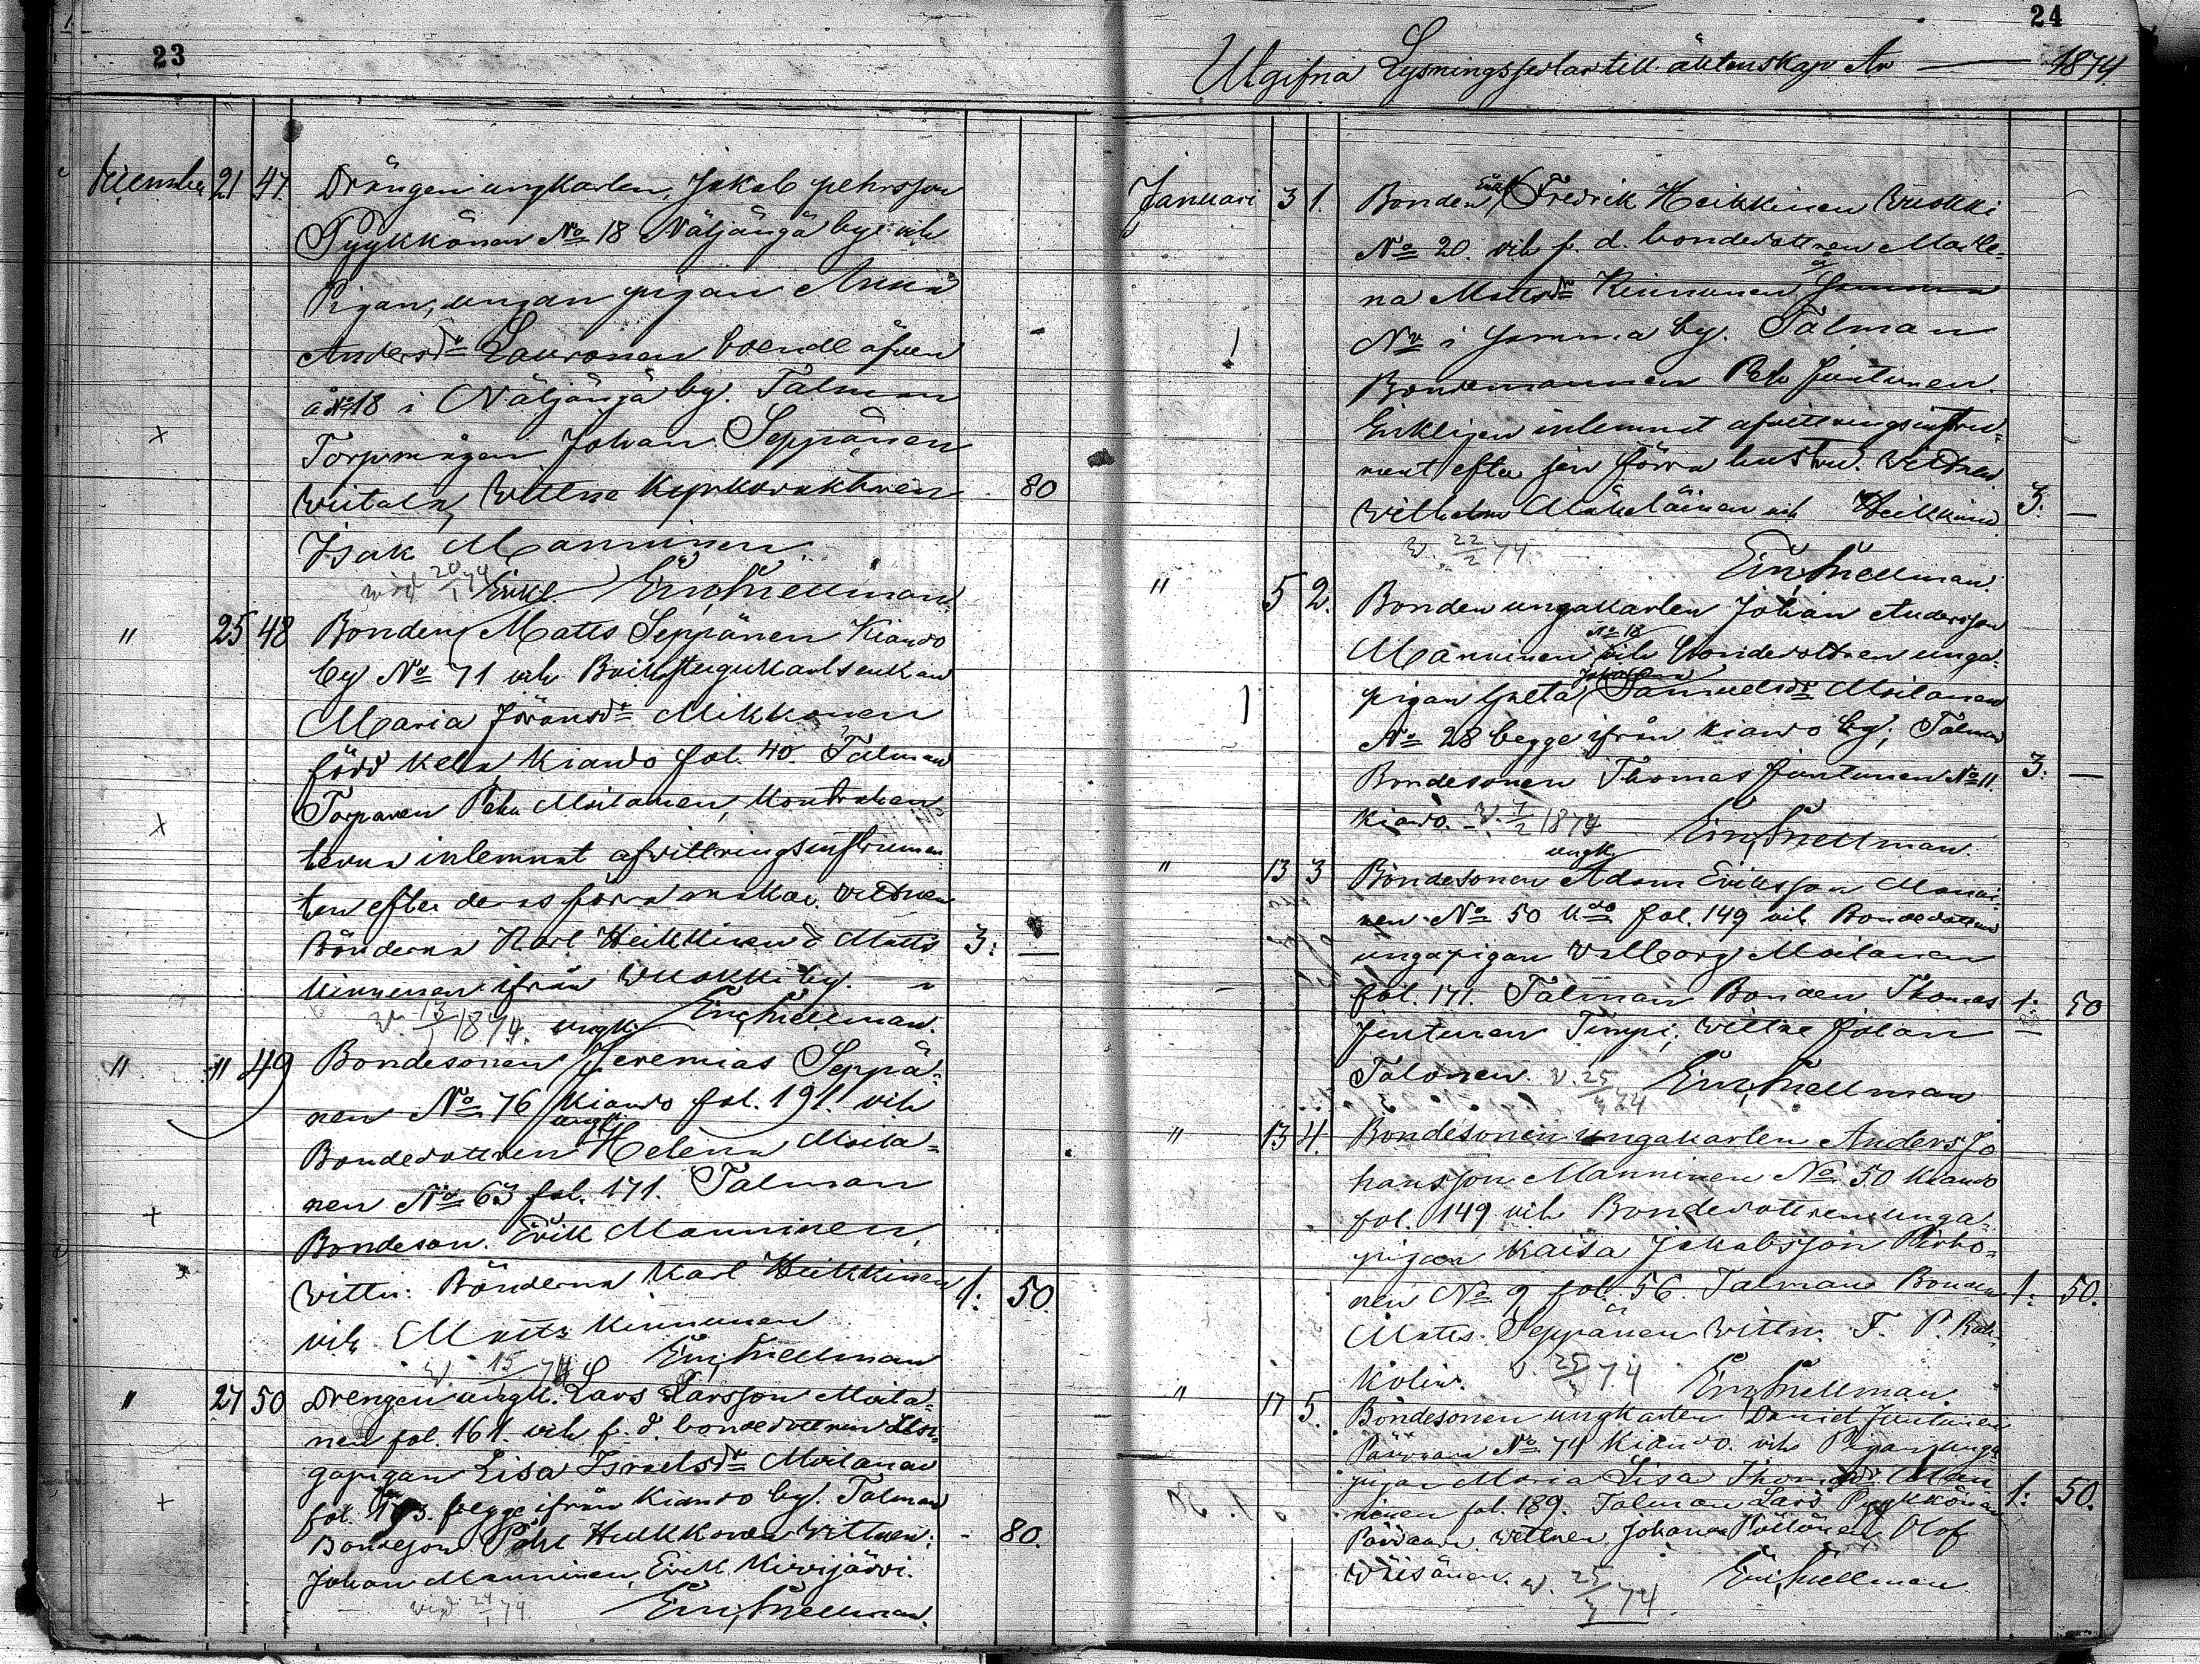 23
December 21 47. Drängen ungkarlen, Jakob Pehrsson
Pyykkönen No 18 Näljängä by och
Pigan, ungan pigan Anna
Andersdr Lauronen boende äfven
å No 18 i Näljängä by. Talman
Torpmågen Johan Seppänen
Wiitala, Wittne Kyrkovaktaren 80
Isak Manninen.
wigd 20/1 74 Em. Snellman.
" 25 48 Bonden Enkl. Matts Seppänen Kiando
by No 71 och Enkan
Maria Göransdr Mikkonen
född Kela Kiando fol. 40. Talman
Torparen Pehr Moilanen, Kontrahen-
terna inlemnat afvittringsinstrumen-
ten efter deras förra makar. Vittnen
Bönderna Karl Heikkinen & Matts 3: —
Kinnunen ifrån Wuokki by.
v. 13/1 1874. Em. Snellman.
" " 49 Bondesonen ungk. Jeremias Seppä-
nen No 76 Kiando fol. 191. och
Bondedottren ungp. Helena Moila-
nen No 63 fol. 171. Talman
Bondeson. Erik Manninen,
Wittn: Bönderna Karl Heikkinen 1: 50.
och Matts Kinnunen
v. 15 74 Em. Snellman
" 27 50 Drengen ungk. Lars Larsson Moila-
nen fol. 161. och f. d. bondedottren un-
gapigan Lisa Israelsdr Moilanen
fol. begge ifrån Kiando by. Talman
Bondeson Pehr Hulkkonen Wittnen: - 80.
Johan Manninen, Erik Kiwijärvi.
wigd 24/1 74. Em. Snellman.
24
Utgifna Lysningssedlar till äktenskap År — 1874
Januari 3 1. Bonden Enkl. Fredrik Heikkinen Wuokki
No 20. och f. d. bondedottren Makle-
na Mattsdr Kinnunen
No i samma by. Talman
Bondemannen Pehr Juntunen.
Enklingen inlemnat afvittringsinstru-
ment efter sin förra hustru. Vittnen
Wilhelm Mäkeläinen och Heikkinen 3: —
v. 22/2 74. Em. Snellman.
" 5 2. Bonden ungakarlen Johan Andersson
Manninen No 18 och bondedottren unga-
pigan Greta Johanna Samuelsdr Moilanen
No 28 begge ifrån Kiando by; Talman
Bondesonen Thomas Juntunen No 11. 3: —
Kiando. v. 7/2 1874 Em. Snellman.
" 13 3 Bondesonen ungk. Adam Eriksson Manni-
nen No 50 Kdo fol. 149 och Bondedottren
ungapigan Walborg Moilanen
fol. 171. Talman Bonden Thomas 1: 50
Juntunen Timpi; Wittne Johan
Talonen. v. 25/3 74 Em. Snellman
" 13 4. Bondesonen ungakarlen Anders Jo
hansson Manninen No 50 Kiando
fol. 149 och Bondedottren unga-
pigan Kaisa Jakobsson Pirho-
nen No 9 fol. 56. Talman Bonden 1: 50.
Matts Seppänen Wittn. F. P. Rah-
kolin. v. 25/3 74 Em. Snellman
" 17 5. Bondesonen ungkarlen Daniel Juntunen
No 74 Kiando. och Pigan unga
pigan Maria Lisa Thomasdr Man
ninen fol. 189. Talman Lars Pyykkönen 1: 50.
Wittnen Johan Pöllönen Olof
Wäisänen. v. 25/3 74. Em. Snellman.